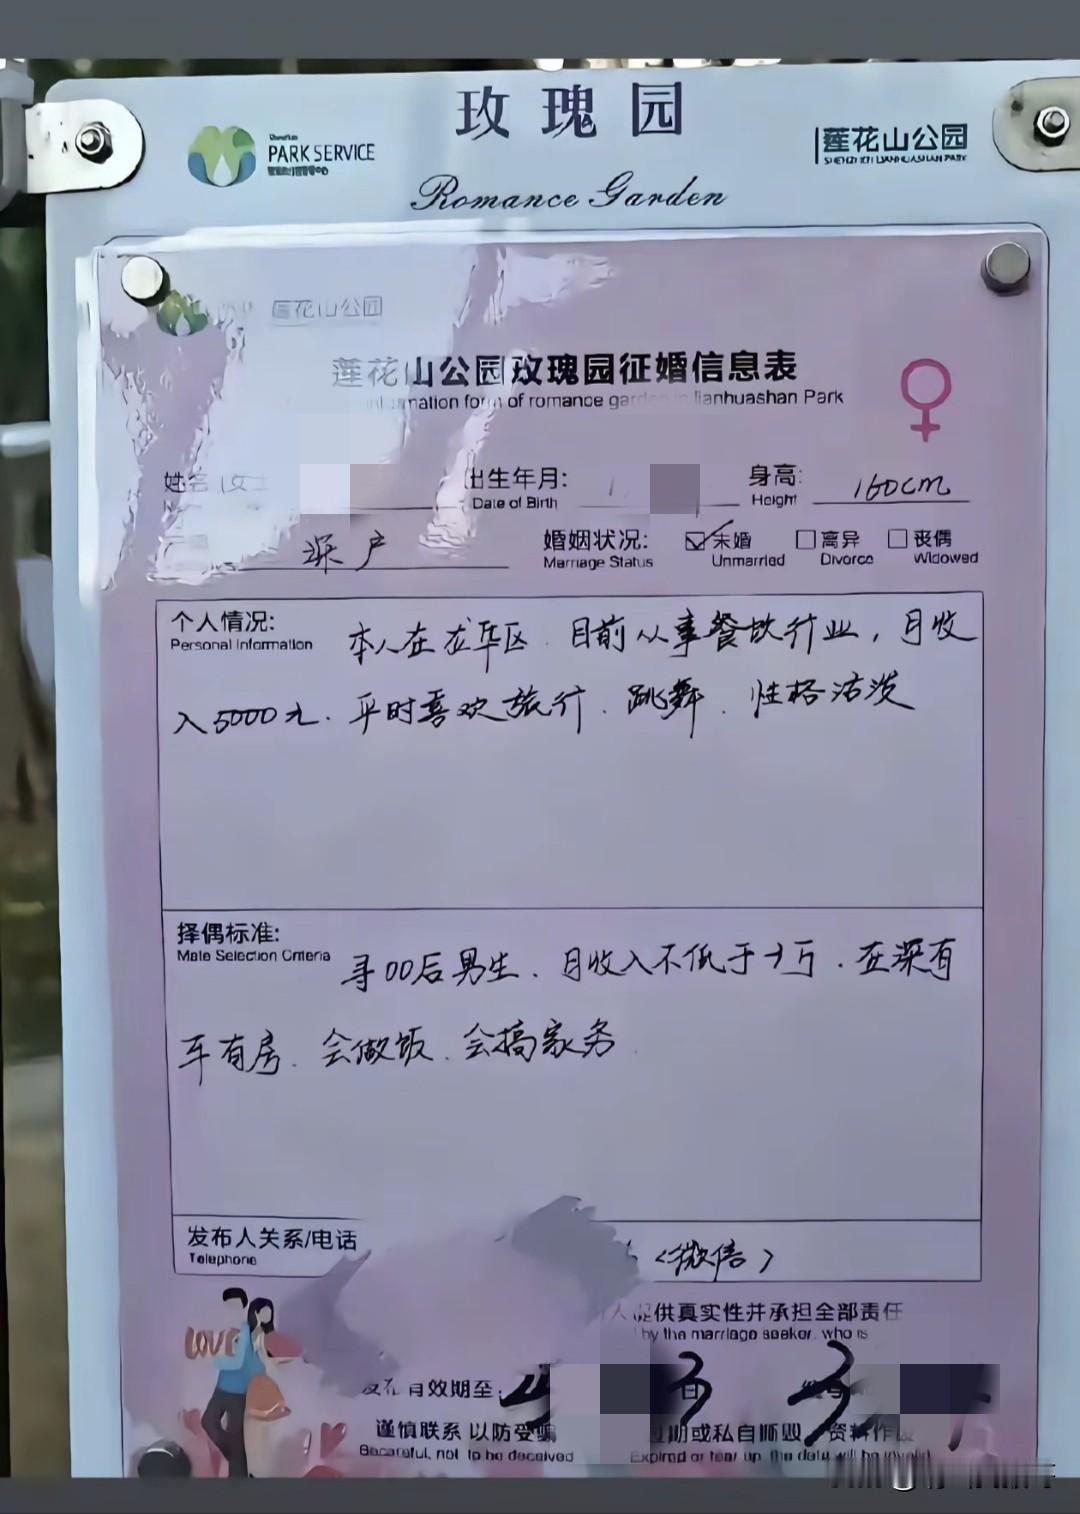 玫瑰园
PARK SERVICE
莲花山公园
SHENZHEN LIANHUASHAN PARK
Romance Garden
莲花山公园
莲花山公园玫瑰园征婚信息表
information form of romance garden in lianhuashan Park
姓名 女士 出生年月: 身高: 160cm
Date of Birth Height
深户 婚姻状况: 未婚 离异 丧偶
Marriage Status Unmarried Divorce Widowed
个人情况: 本人在龙华区. 目前从事餐饮行业, 月收
Personal Information
入5000元. 平时喜欢旅行. 跳舞. 性格活泼
择偶标准:
Mate Selection Criteria 寻00后男生. 月收入不低于十万. 在深有
车有房. 会做饭. 会搞家务
发布人关系/电话
Telephone <微信>
人提供真实性并承担全部责任
by the marriage seeker, who is
LOVE
发布有效期至: 日3
谨慎联系 以防受骗 过期或私自撕毁, 资料作废
Becareful, not to be deceived Expired or tear up, the data will be invalid